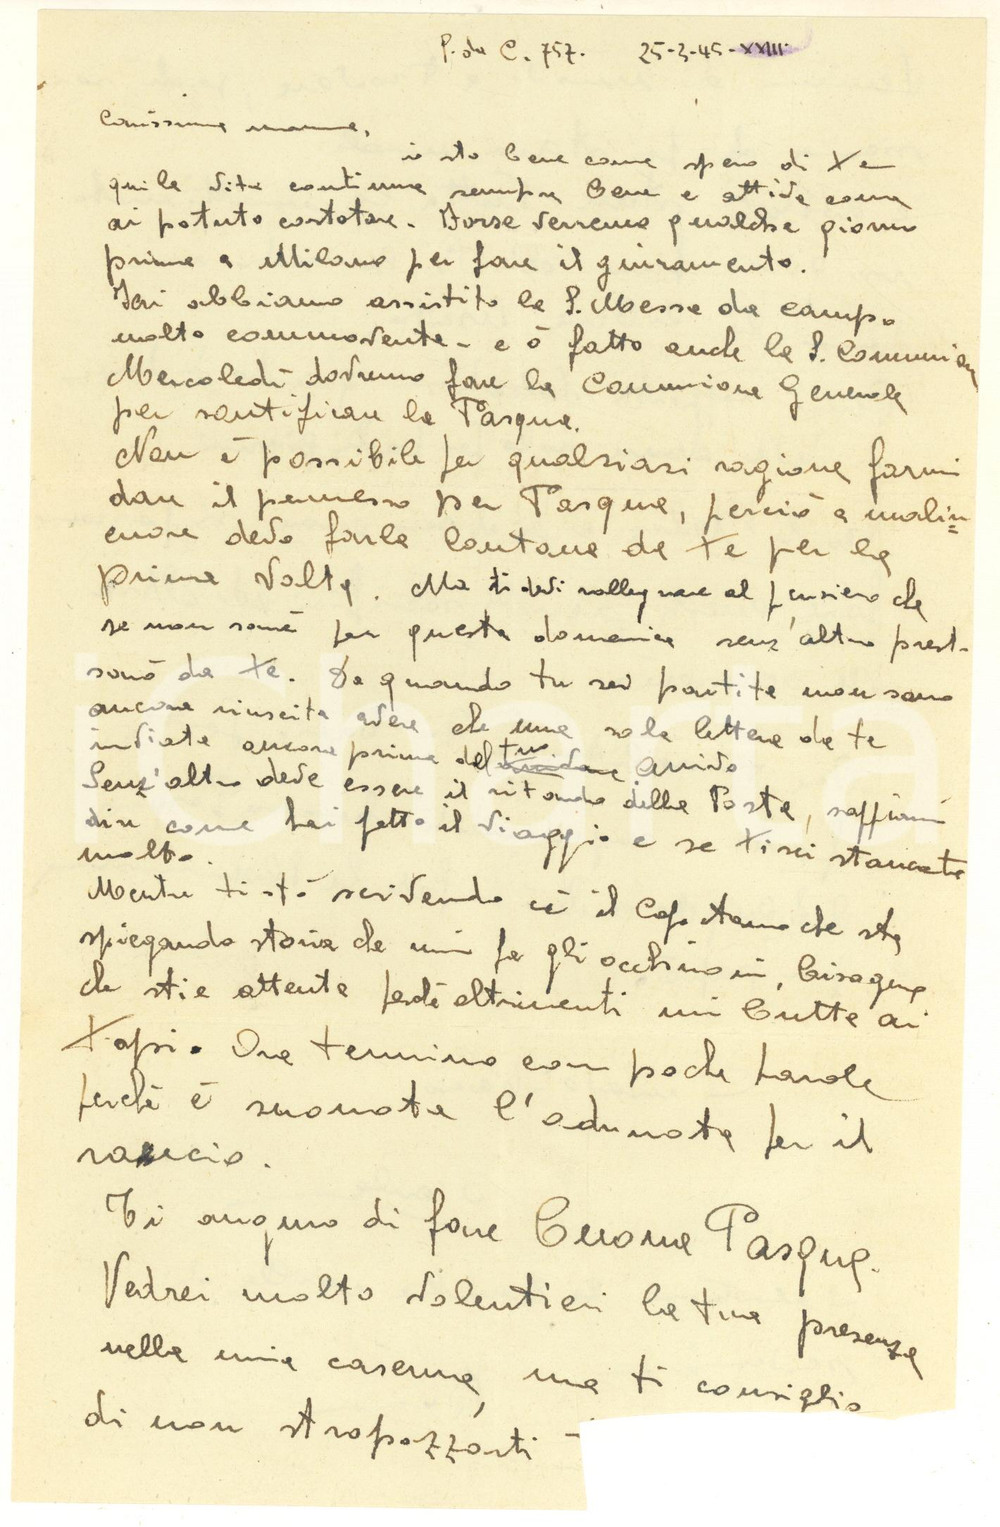 P. da C. 757. 25-3-45-XXIII.
Carissima mamma,
io sto bene come spero di te
qui la vita continua sempre bene e attiva come
ai potuto costatare. Forse verremo qualche giorno
prima a Milano per fare il giuramento.
Ieri abbiamo assistito la S. Messa da campo
molto commovente - e ò fatto anche la S. Communione
Mercoledì dovremo fare la Comunione Generale
per santificare la Pasqua.
Non è possibile per qualsiasi ragione farmi
dare il permesso per Pasqua, perciò a malin=
cuore devo farla lontana da te per la
prima volta. Ma ti devi rallegrare al pensiero che
se non sarà per questa domenica senz'altro presto
sarò da te. Da quando tu sei partita non sono
ancora riuscita avere che una sola lettera da te
inviata ancora prima del tuo arrivo
Senz'altro deve essere il ritardo della Posta, sappimi
dire come hai fatto il viaggio e se ti sei stancata
molto.
Mentre ti stò scrivendo c'è il Capitano che sta
spiegando storia che mi fa gli occhinoni, bisogna
che stia attenta perchè altrimenti mi butta ai
topi. Ora termino con poche parole
perchè è suonata l'adunata per il
rancio.
Ti auguro di fare buona Pasqua.
Vedrei molto volentieri la tua presenza
nella mia caserma, ma ti consiglio
di non strapazzarti